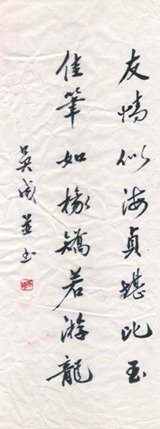 友情似海貞堪比玉
佳筆如椽矯若游龍
吳成並书